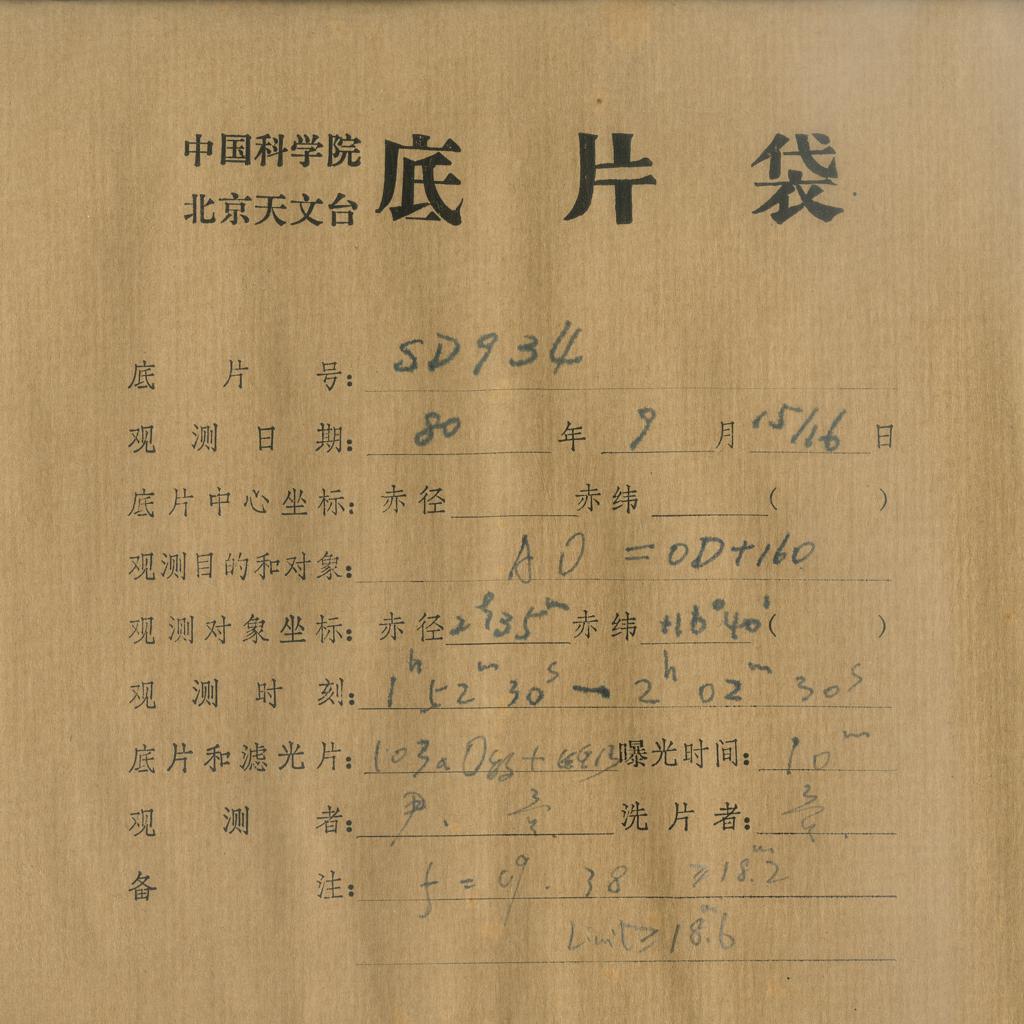 中国科学院
北京天文台
底片袋
底片号：SD934
观测日期：80年9月15/16日
底片中心坐标：赤径 赤纬 （ ）
观测目的和对象：AO = OD+160
观测对象坐标：赤径2ʰ35ᵐ赤纬+16°40′（ ）
观测时刻：1ʰ52ᵐ30ˢ—2ʰ02ᵐ30ˢ
底片和滤光片：103aO 曝光时间：10ᵐ
观测者：尹. 洗片者：
备注：f = 38 ≥18.ᵐ2
Limit≥18.ᵐ6